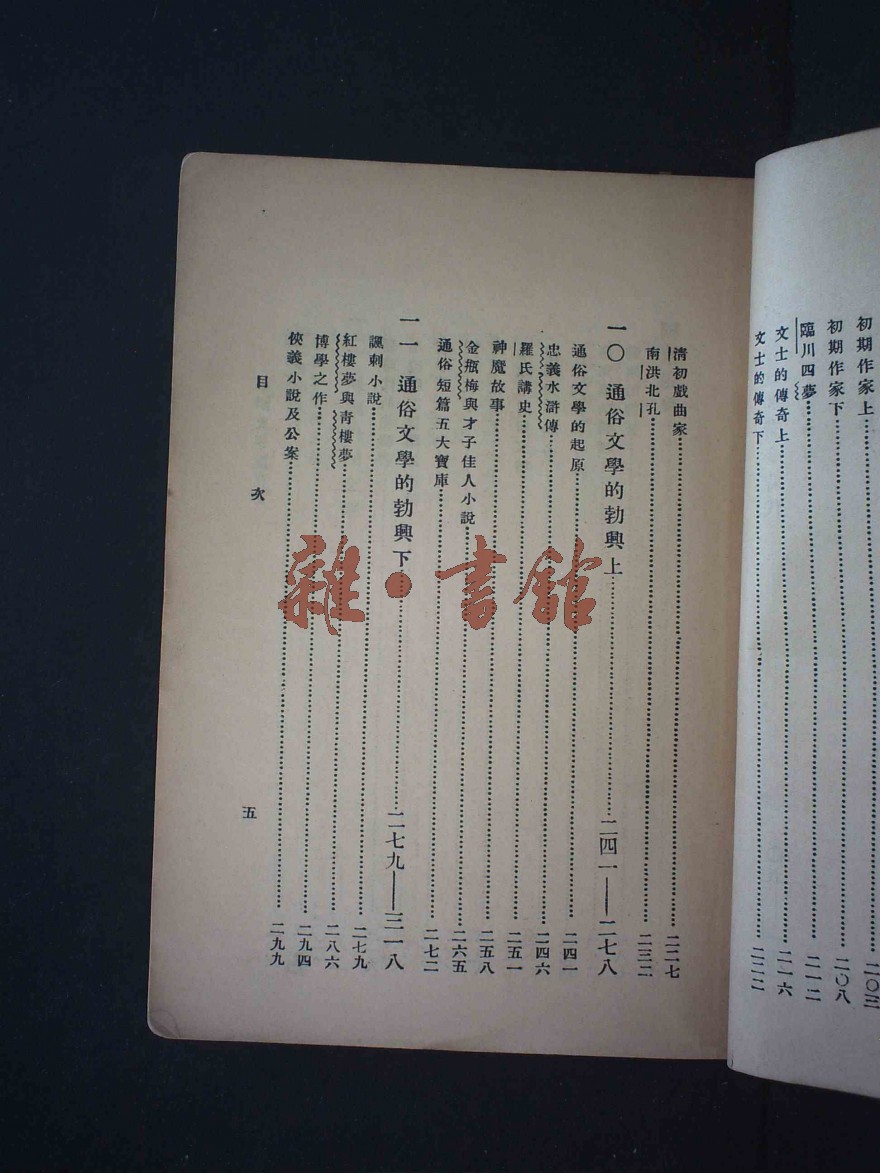 初期作家上……二〇三
初期作家下……二〇八
臨川四夢……二一二
文士的傳奇上……二一六
文士的傳奇下……二二二
清初戲曲家……二二七
南洪北孔……二三二
一〇 通俗文學的勃興上……二四一——二七八
通俗文學的起原……二四一
忠義水滸傳……二四六
羅氏講史……二五一
神魔故事……二五八
金瓶梅與才子佳人小說……二六五
通俗短篇五大寶庫……二七二
一一 通俗文學的勃興下……二七九——三一八
諷刺小說……二七九
紅樓夢與青樓夢……二八六
博學之作……二九四
俠義小說及公案……二九九
目次 五
雜·書館